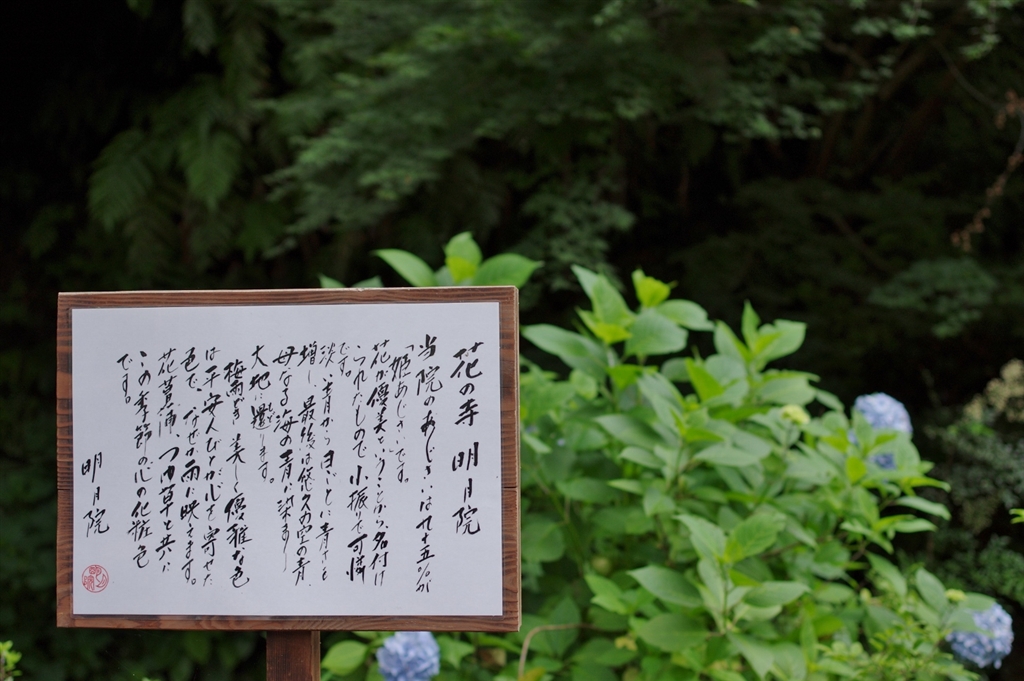 花の寺 明月院
当院のあじさいは九十五%が
「姫あじさい」です。
花が優美ということから名付け
られたもので小振りで可憐
です。
淡い青から日ごとに青さを
増し、最後は悠久の空の青、
母なる海の青に染まり
大地に還ります。
梅雨がき美しく優雅な色
は平安人びとが心を寄せた
色で、なぜか雨に映えます。
花菖蒲、つゆ草と共に
この季節の心の化粧色
です。
明月院